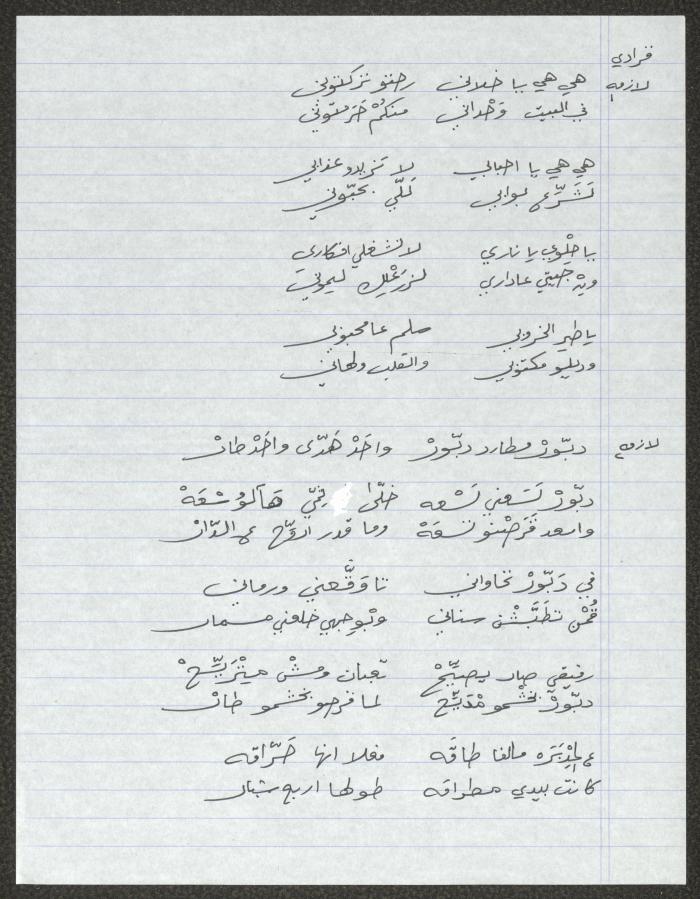 قرادي
لازمه هي هي يا خلاني رحتو تركتوني
في البيت وَحْداني منكُمْ حَرَمتوني
هي هي يا احبابي لا تزيدو عذابي
تَشَرِّع بوابي تَلّي بحبّوني
يا حِلْوي يا ناري لا تشغلي افكاري
ويْن جيتي عاداري لزرَعْلِك ليموني
يا طير الخروبي سلم عا محبوبي
وديلو مكتوبي والقلب ولهاني
لازمه دبّورْ مطارد دبّورْ واحَدْ هَدّى واحَدْ طارْ
دبّورْ لَسَعني لَسْعه خلّى تِمّي هَالوُسْعَهْ
واسعد قَرَصْتو تسعَهْ وما قدر اروّح ع الدّارْ
في دَبّورْ نحاواني تا وَقَّعني ورماني
قُمْن تطَبَّشْن سناني وبْوجهي خلعني مسمار
رفيقي صار يصيِّحْ تعبان ومشْ ميتْرَيِّحْ
دبّورْ بخشْمو مْدَيِّحْ لما قرصو بخشمو طارْ
ع لِدْبَرَه مالها طاقَه فعلا انها حَرّاقه
كانت بيدي مطراقه طولها اربع شبار